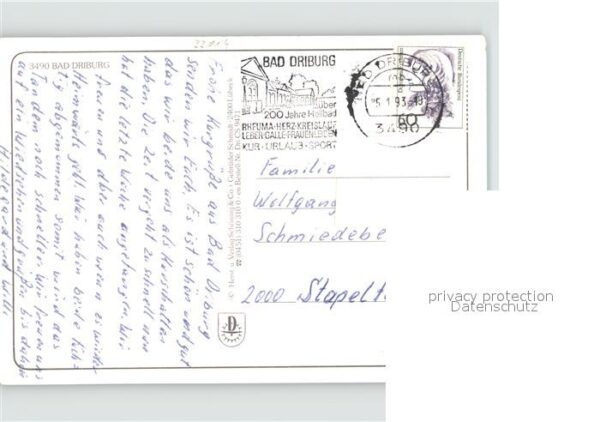 22814
3490 BAD DRIBURG
BAD DRIBURG
über
200 Jahre Heilbad
RHEUMA-HERZ-KREISLAUF
LEBER-GALLE-FRAUENLEIDEN
KUR-URLAUB-SPORT
BAD DRIBURG
-5.1.93-18
3490
Deutsche Bundespost
60
Frohe Kurgrüße aus Bad Driburg
senden wir Euch. Es ist schön und gut
das wir beide uns als
haben. Die Zeit vergeht zu schnell nun
hat die letzte Woche angefangen. Wir
freuen uns aber auch wenn es wieder
Heimwärts geht. Wir haben beide
abgenommen somit wird das
Tanden noch schneller. Wir freuen uns
auf ein Wiedersehen und grüßen bis dahin
Hildegard und Willi
© Horst u. Verlag Schöning & Co. Gebrüder Schmidt, 2400 Lübeck
Familie
Wolfgang
Schmiedebe
2000 Stapelt
privacy protection
Datenschutz